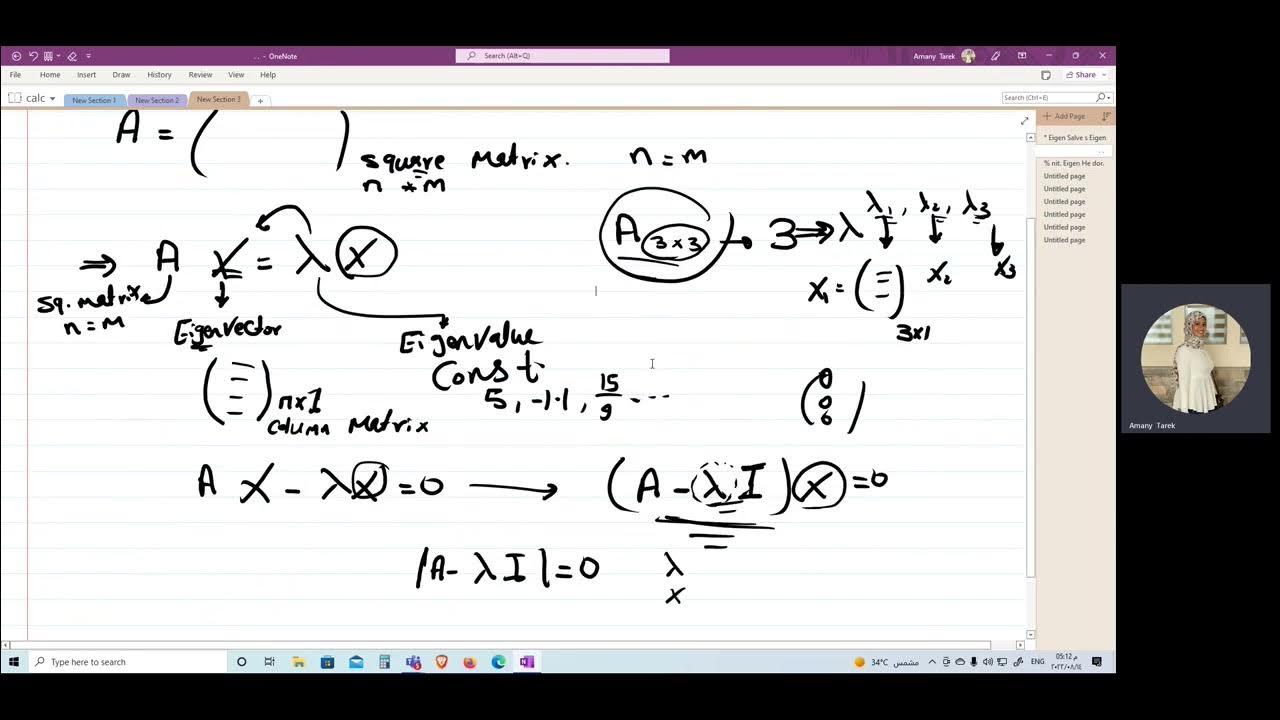 .. - OneNote
Search (Alt+Q)
Amany Tarek
File Home Insert Draw History Review View Help
Share
calc
New Section 1 New Section 2 New Section 3 +
Search (Ctrl+E)
Add Page
* Eigen Salve s Eigen
..
% nit. Eigen He dor.
Untitled page
Untitled page
Untitled page
Untitled page
Untitled page
Untitled page
A = ( )
square matrix. n = m
n * m
A 3x3 → 3 ⇒ λ λ1, λ2, λ3
⇒ A X = λ X
X1 = ( ) X2 X3
3x1
Sq. matrix
n = m
Eigenvector
Eigenvalue
Const
5, -1.1, 15/9 ...
( ) nx1
column matrix
(0
0
0)
A X - λX = 0 → (A - λI) X = 0
|A - λI| = 0 λ
x
Amany Tarek
Type here to search
34°C مشمس
ENG
05:12 م
٢٠٢٢/٠٨/١٤